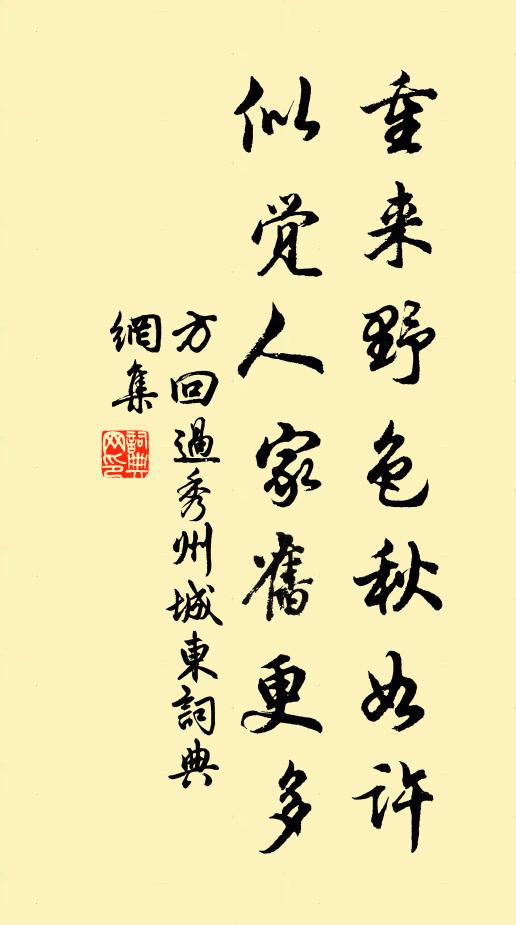 重来野色秋如许
似觉人家舊更多
方回過秀州城東詞典
網集
詞典
网印